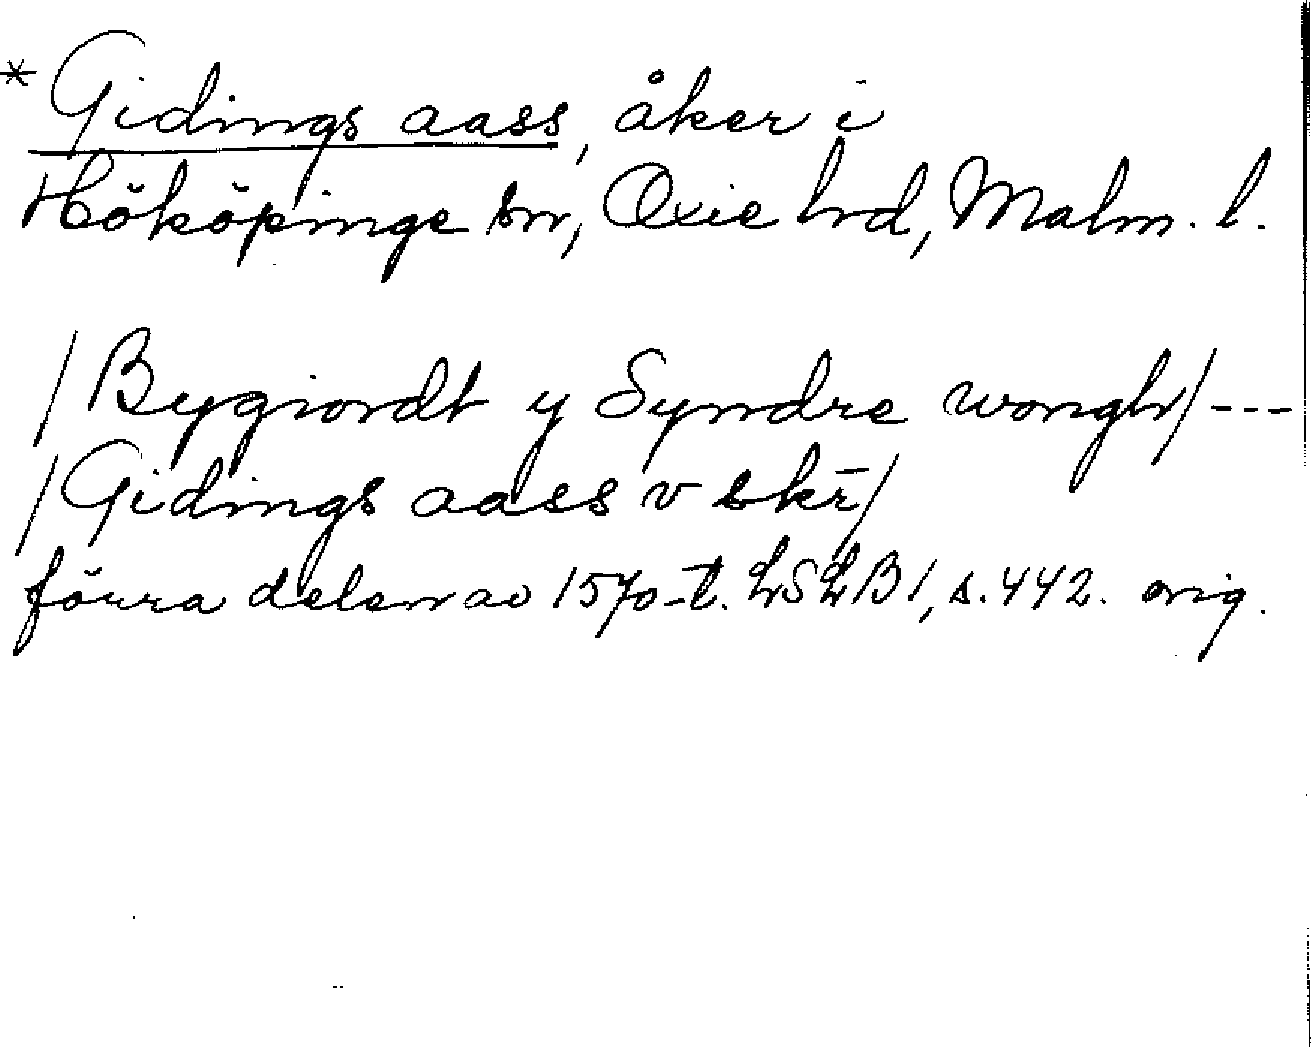 * Gidings aass, åker i
Hököpinge sn, Oxie hrd, Malm. l.
/Bygiordt y Syndre wongh/---
/Gidings aass v skr̄/
förra delen av 1570-t. LSLB1, s. 442. orig.